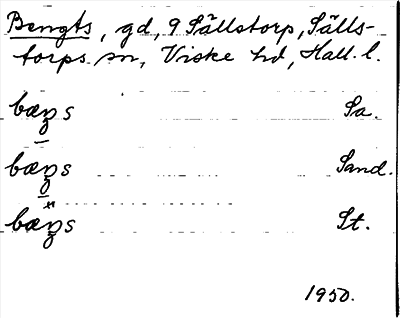 Bengts, gd, 9 Sällstorp, Sälls-
torps sn, Viske hd, Hall. l.
bæŋs Sa.
bæŋs Sand.
bæŋs St.
1950.